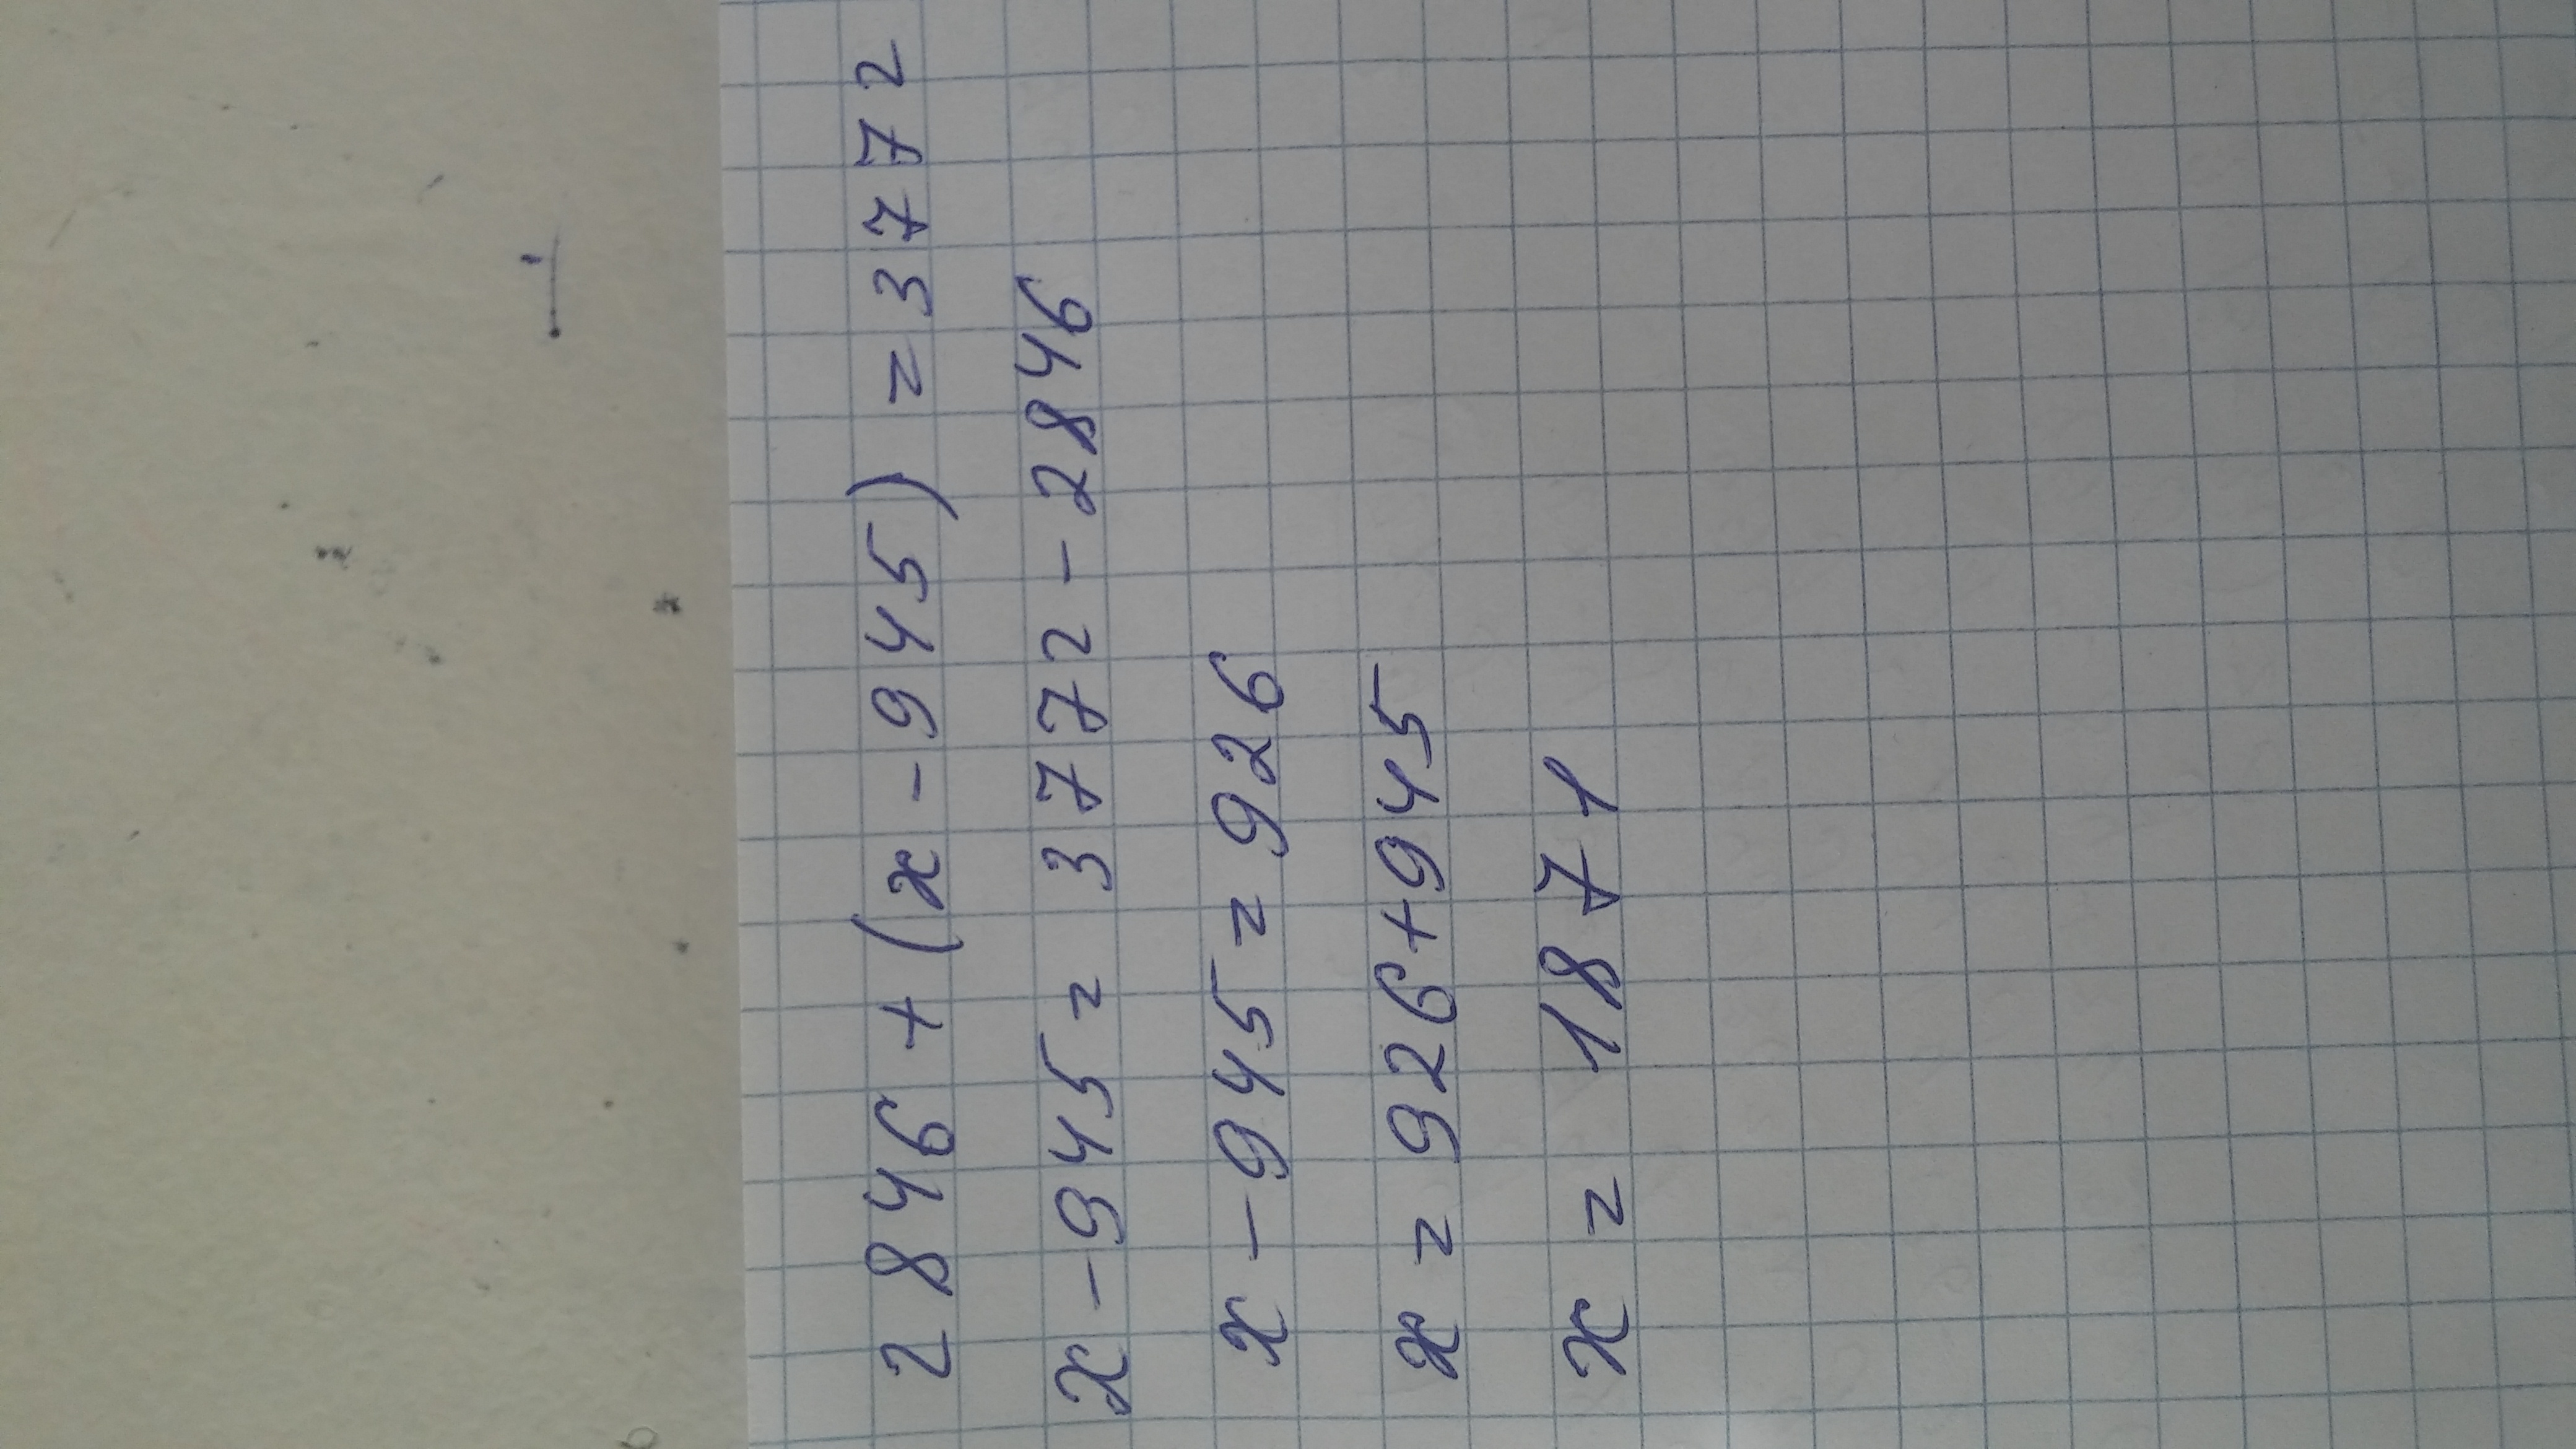 2846 + (x - 945) = 3772
x - 945 = 3772 - 2846
x - 945 = 926
x = 926 + 945
x = 1871